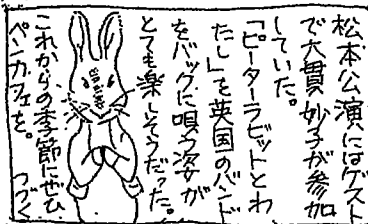 松本公演にはゲスト
で大貫妙子が参加
していた。
「ピーターラビットとわ
たし」を英国のバンド
をバックに唄う姿が
とても楽しそうだった。
これからの季節にぜひ
ペンカフェを。
つづく